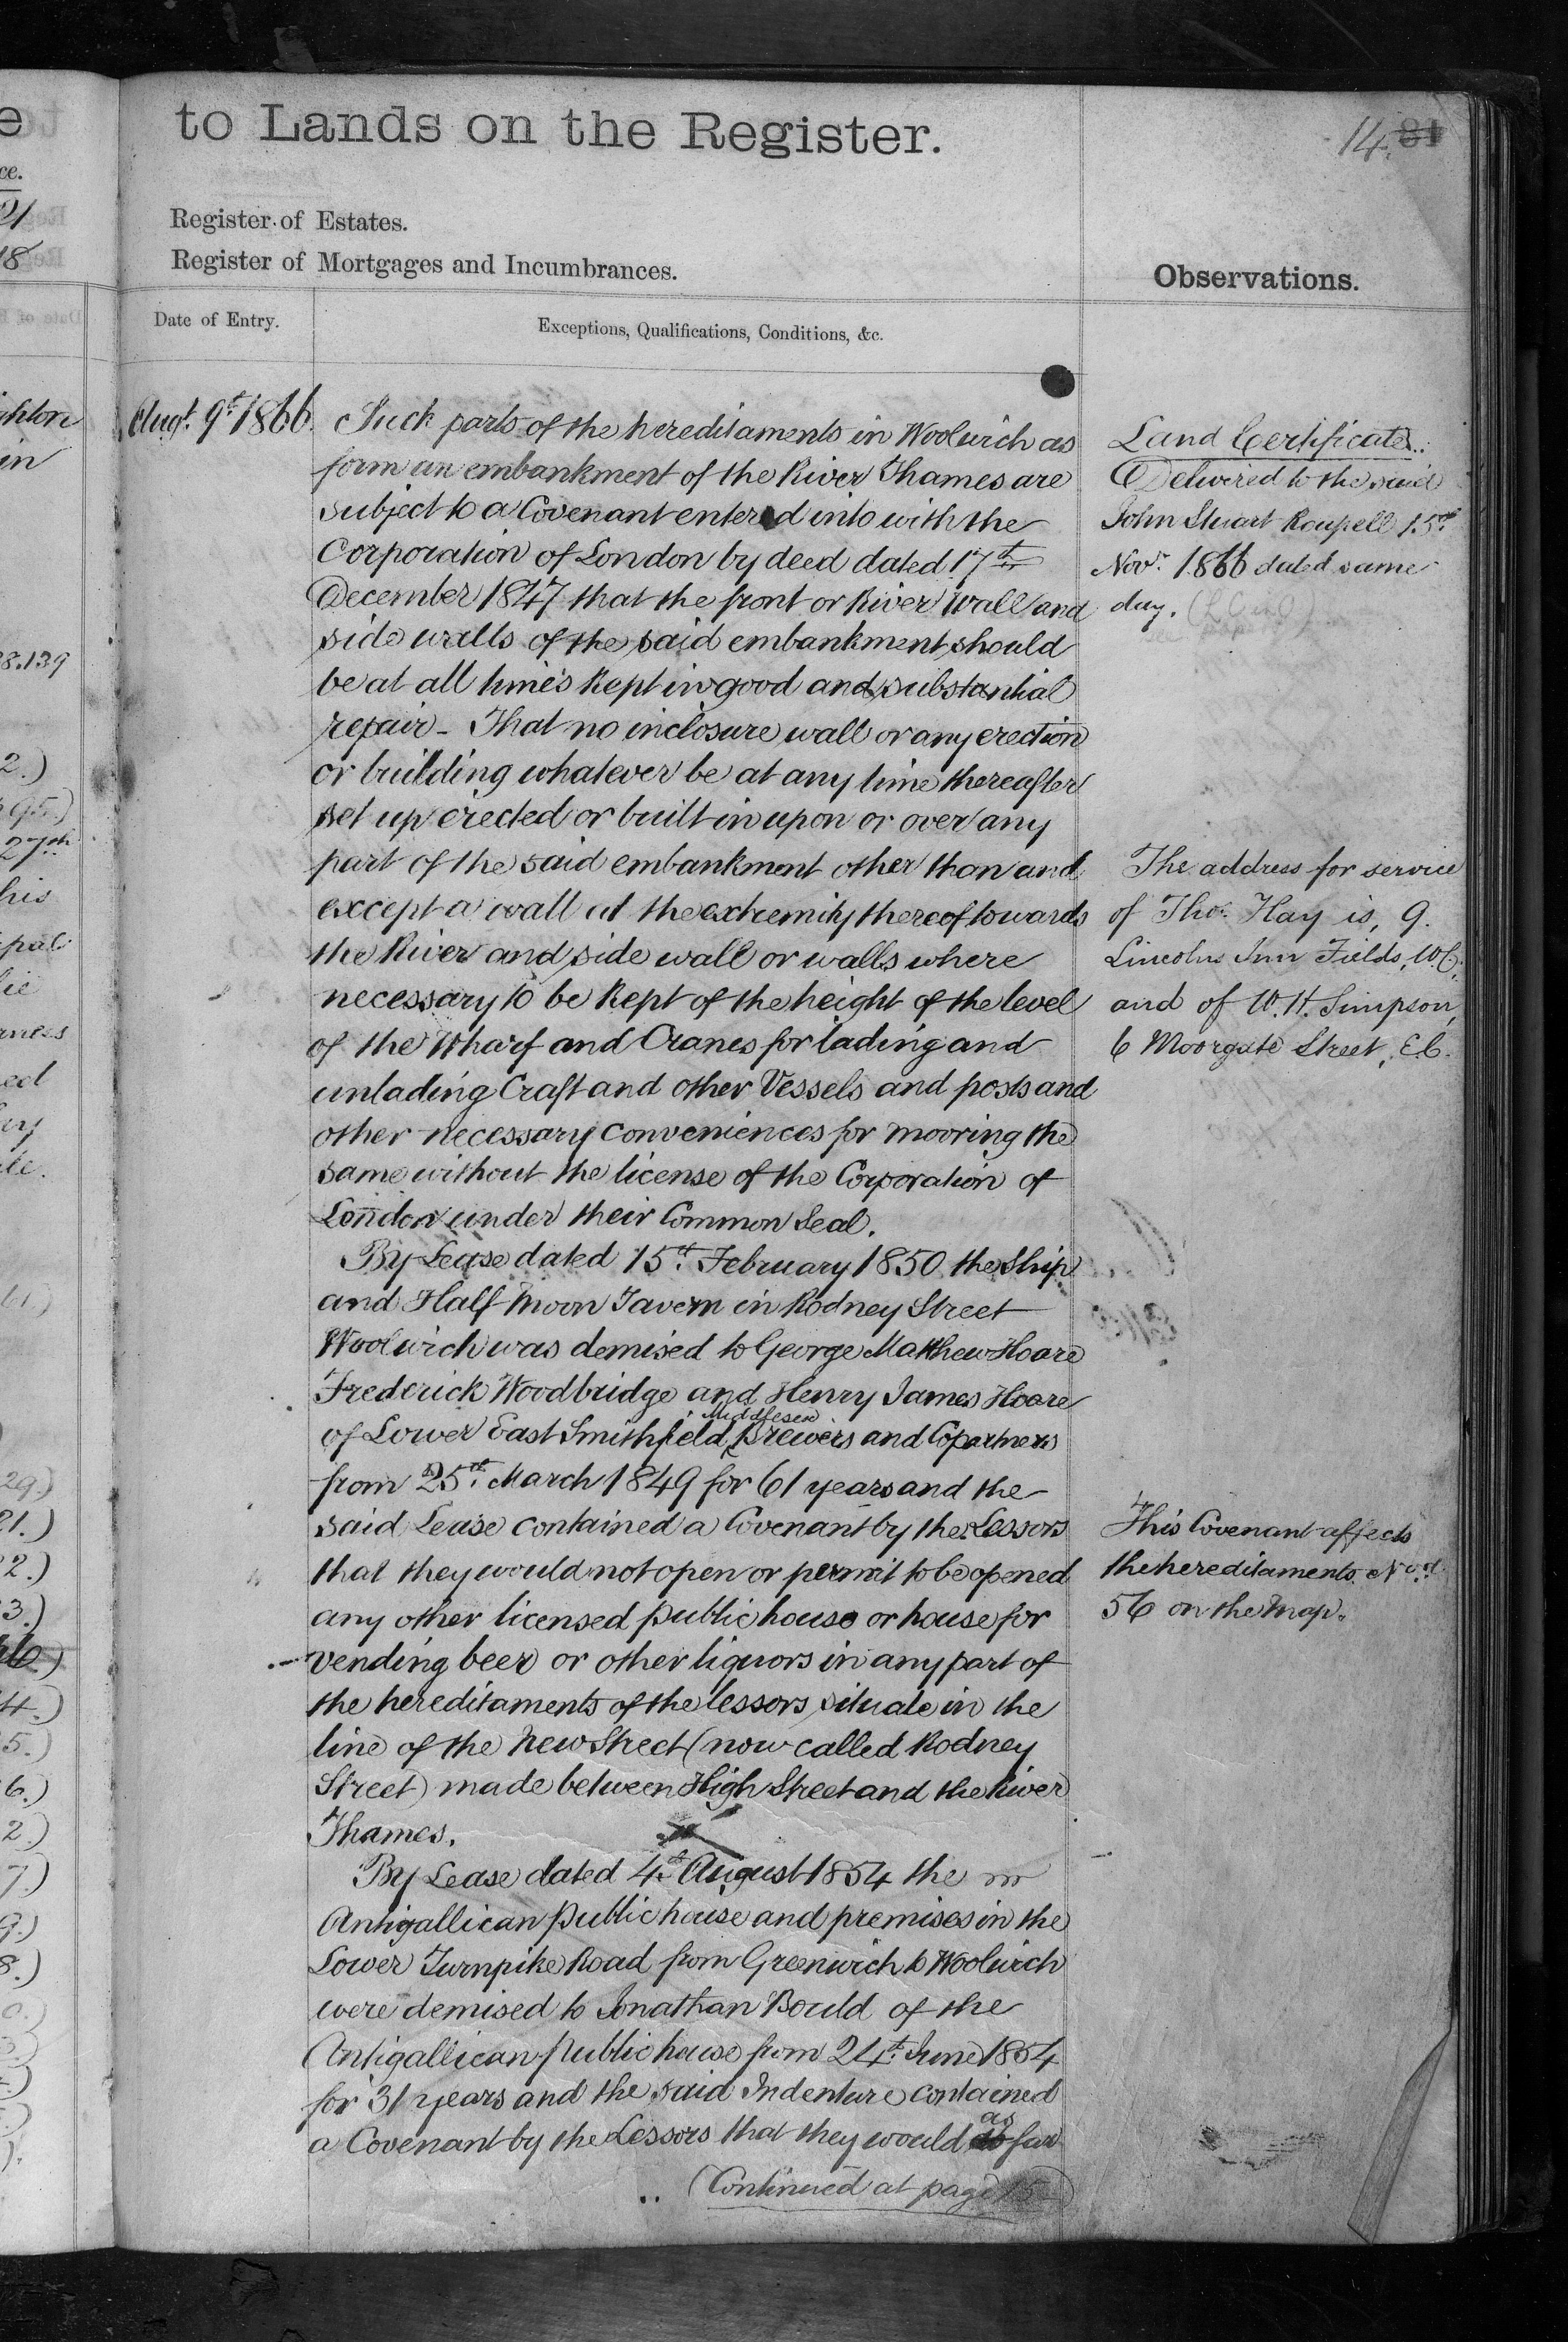 to Lands on the Register.
14. 81
Register of Estates.
Register of Mortgages and Incumbrances.
Observations.
Date of Entry.
Exceptions, Qualifications, Conditions, &c.
Augt. 9th 1866.
Such parts of the hereditaments in Woolwich as
form an embankment of the River Thames are
subject to a Covenant entered into with the
Corporation of London by deed dated 17th
December 1847 that the front or River Wall and
side walls of the said embankment should
be at all times kept in good and substantial
repair - That no inclosure wall or any erection
or building whatever be at any time thereafter
set up erected or built in upon or over any
part of the said embankment other than and
except a wall at the extremity thereof towards
the River and side wall or walls where
necessary to be kept of the height of the level
of the Wharf and Cranes for lading and
unlading Craft and other Vessels and posts and
other necessary conveniences for mooring the
same without the license of the Corporation of
London under their Common Seal.
By Lease dated 15th February 1850 the Ship
and Half Moon Tavern in Rodney Street
Woolwich was demised to George Matthew Hoare
Frederick Woodbridge and Henry James Hoare
of Lower East Smithfield Middlesex Brewers and Copartners
from 25th March 1849 for 61 years and the
said Lease contained a Covenant by the Lessors
that they would not open or permit to be opened
any other licensed public house or house for
vending beer or other liquors in any part of
the hereditaments of the lessors situate in the
line of the New Street (now called Rodney
Street) made between High Street and the River
Thames.
By Lease dated 4th August 1854 the
Antigallican public house and premises in the
Lower Turnpike Road from Greenwich to Woolwich
were demised to Jonathan Bould of the
Antigallican public house from 24th June 1854
for 31 years and the said Indenture contained
a Covenant by the Lessors that they would as far
(Continued at page 15
Land Certificate
Delivered to the said
John Stuart Roupell 15th
Novr. 1866 dated same
day.
The address for service
of Thos. Hay is, 9.
Lincolns Inn Fields, W.C.
and of W. H. Simpson,
6 Moorgate Street, E.C.
This Covenant affects
the hereditaments Nod.
56 on the Map.